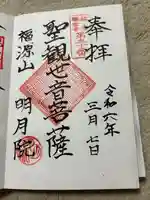 奉拝
令和六年
三月七日
聖観世音菩薩
福源山
明月院